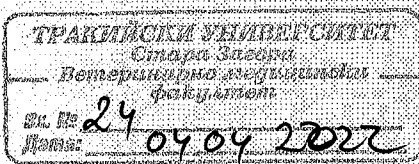 ТРАКИЙСКИ УНИВЕРСИТЕТ
Стара Загора
Ветеринарно медицински
факултет
Вх. № 24
Дата: 04 04 2022